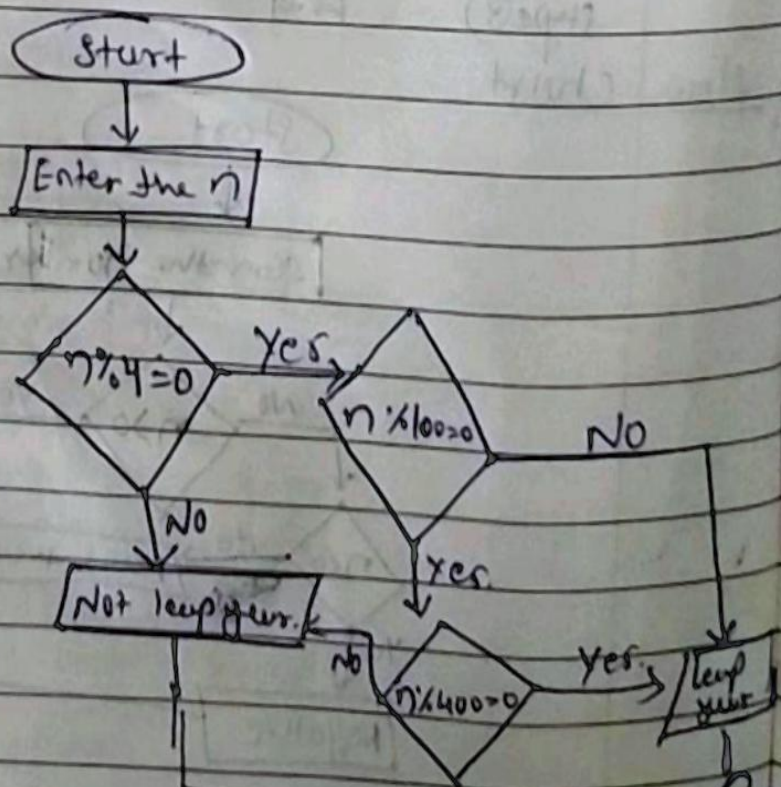 Start
Enter the n
n%4=0
Yes
n%100=0
NO
NO
Yes.
Not leap year.
NO
n%400=0
Yes.
leap
year